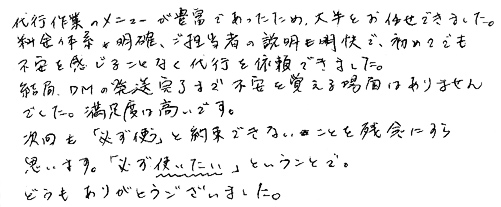 代行作業のメニューが豊富であったため、大半をお任せできました。
料金体系も明確、ご担当者の説明も明快で、初めてでも
不安を感じることなく代行を依頼できました。
結局、DMの発送完了まで不安を覚える場面はありません
でした。満足度は高いです。
次回も「必ず使う」と約束できないことを残念にすら
思います。「必ず使いたい」ということで。
どうもありがとうございました。